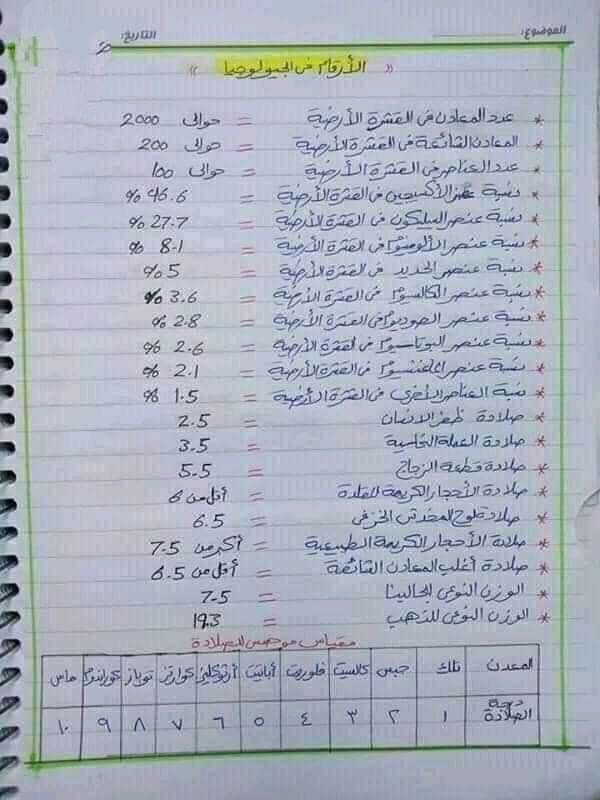 الموضوع: التاريخ:
« الأرقام فى الجيولوجيا »
* عدد المعادن فى القشرة الأرضية = حوالى 2000
* المعادن الشائعة فى القشرة الأرضية = حوالى 200
* عدد العناصر فى القشرة الأرضية = حوالى 100
* نسبة عنصر الأكسجين فى القشرة الأرضية = 46.6 %
* نسبة عنصر السليكون فى القشرة الأرضية = 27.7 %
* نسبة عنصر الألومنيوم فى القشرة الأرضية = 8.1 %
* نسبة عنصر الحديد فى القشرة الأرضية = 5 %
* نسبة عنصر الكالسيوم فى القشرة الأرضية = 3.6 %
* نسبة عنصر الصوديوم فى القشرة الأرضية = 2.8 %
* نسبة عنصر البوتاسيوم فى القشرة الأرضية = 2.6 %
* نسبة عنصر الماغنسيوم فى القشرة الأرضية = 2.1 %
* نسبة العناصر الأخرى فى القشرة الأرضية = 1.5 %
* صلادة ظفر الانسان = 2.5
* صلادة العملة النحاسية = 3.5
* صلادة قطعة الزجاج = 5.5
* صلادة الأحجار الكريمة المقلدة = أقل من 6
* صلادة لوح المخدش الخزفى = 6.5
* صلادة الأحجار الكريمة الطبيعية = أكبر من 7.5
* صلادة أغلب المعادن الشائعة = أقل من 6.5
* الوزن النوعى للجالينا = 7.5
* الوزن النوعى للذهب = 19.3
مقياس موهس للصلادة
المعدن تلك جبس كالسيت فلوريت أباتيت أرثوكليز كوارتز توباز كوراندوم ماس
درجة الصلادة ١ ٢ ٣ ٤ ٥ ٦ ٧ ٨ ٩ ١٠